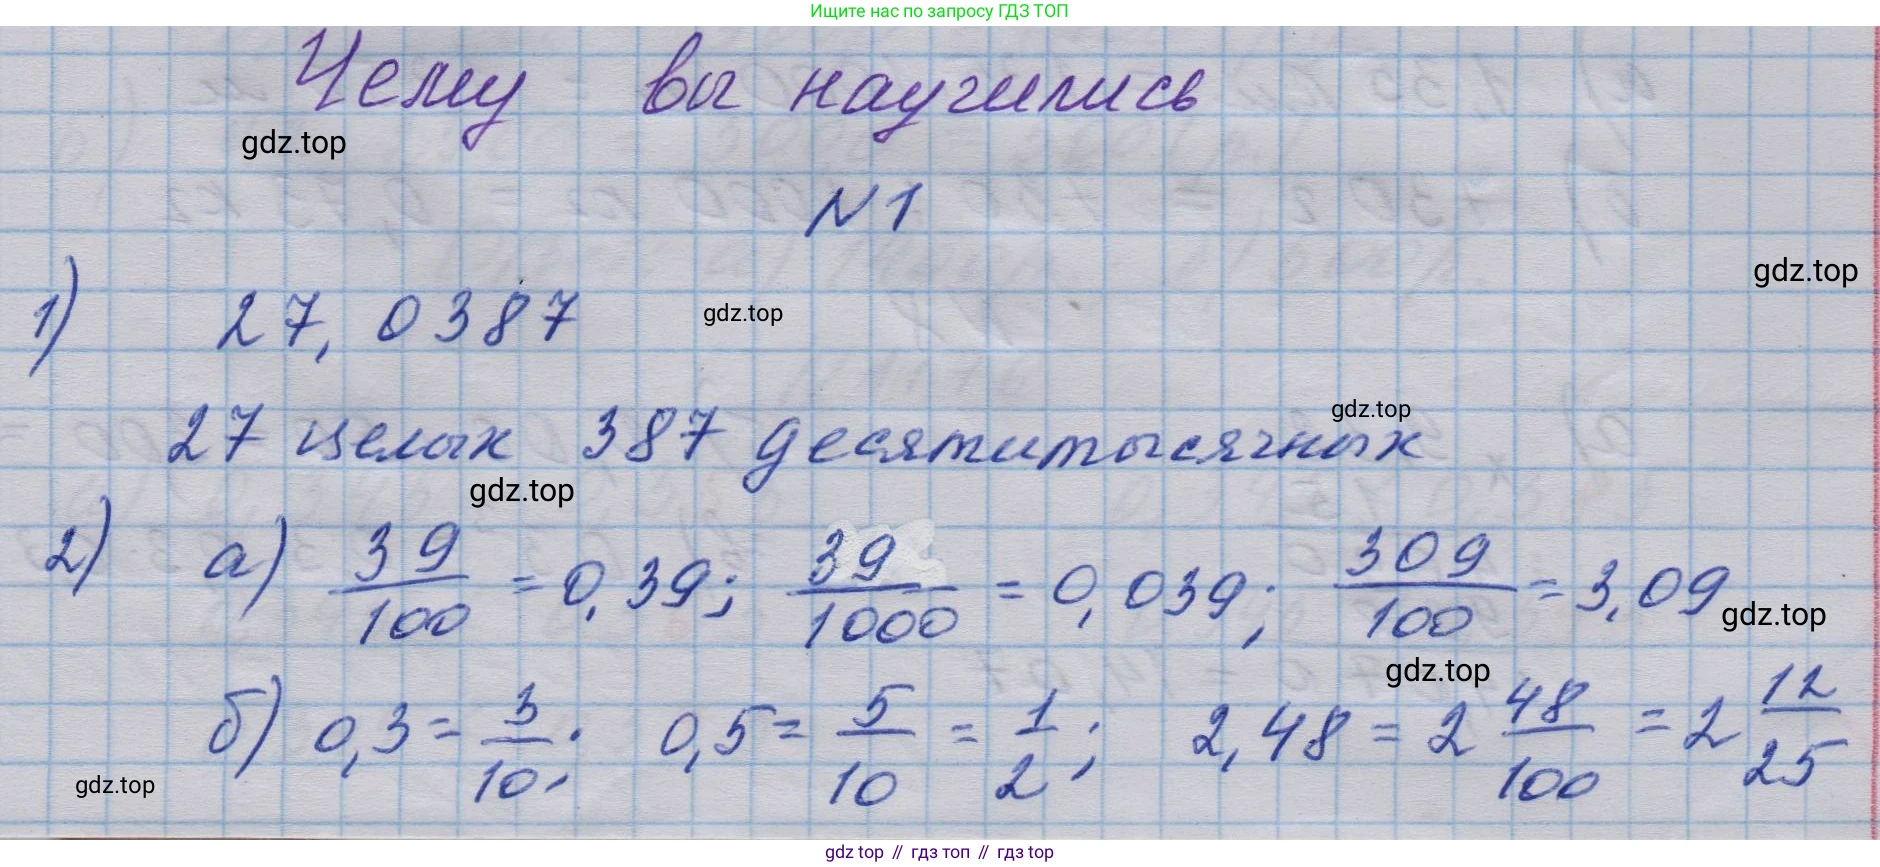 Ищите нас по запросу ГДЗ ТОП
Чему вы научились
gdz.top
N1
gdz.top
1) 27,0387
gdz.top
27 целых 387 десятитысячных
gdz.top
gdz.top
2) а) 39/100 = 0,39; 39/1000 = 0,039; 309/100 = 3,09
gdz.top
gdz.top
б) 0,3 = 3/10; 0,5 = 5/10 = 1/2; 2,48 = 2 48/100 = 2 12/25
gdz.top
gdz top // гдз топ // гдз top